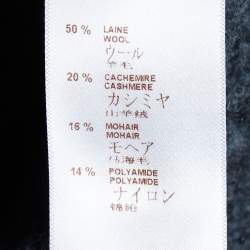 50 % LAINE
WOOL
ウール
羊毛
20 % CACHEMIRE
CASHMERE
カシミヤ
山羊絨
16 % MOHAIR
MOHAIR
モヘア
14 % POLYAMIDE
POLYAMIDE
ナイロン